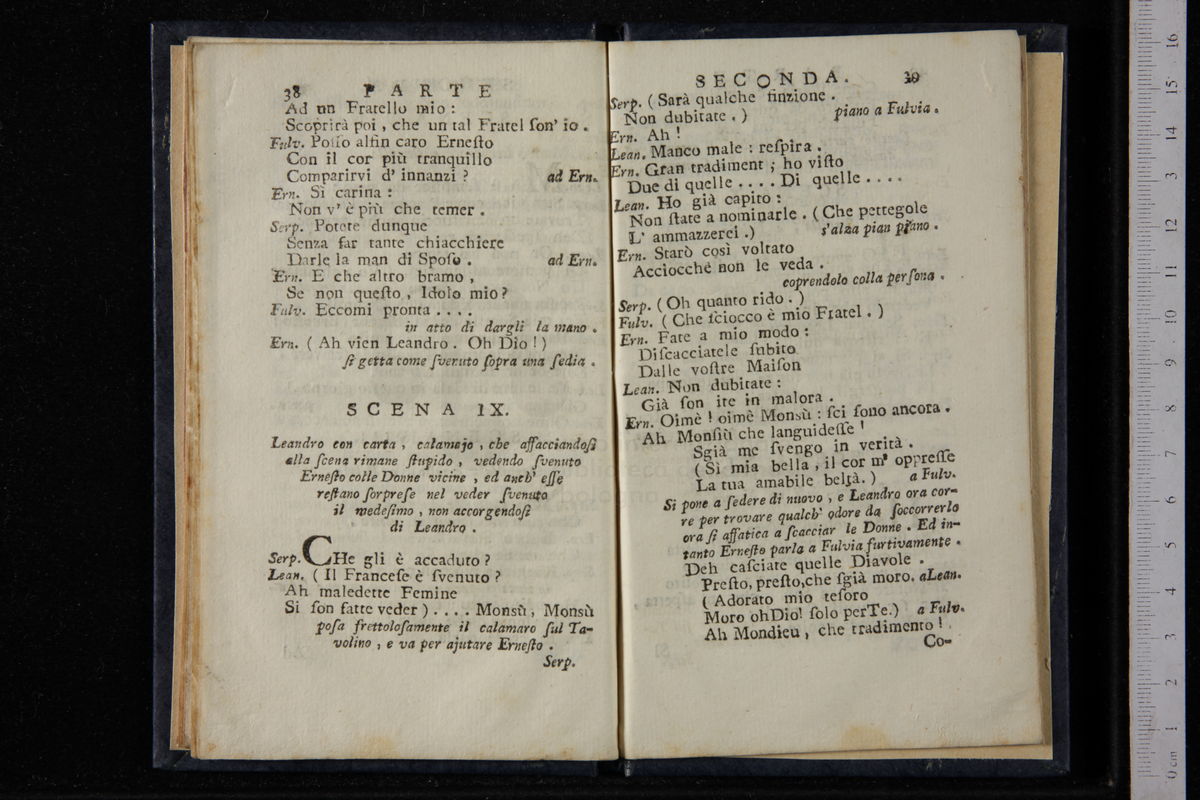 38 PARTE
Ad un Fratello mio :
Scoprirà poi , che un tal Fratel ſon' io .
Fulv. Poſſo alfin caro Erneſto
Con il cor più tranquillo
Comparirvi d' innanzi ? ad Ern.
Ern. Sì carina :
Non v' è più che temer .
Serp. Potete dunque
Senza far tante chiacchiere
Darle la man di Spoſo . ad Ern.
Ern. E che altro bramo ,
Se non queſto , Idolo mio ?
Fulv. Eccomi pronta . . . .
in atto di dargli la mano .
Ern. ( Ah vien Leandro . Oh Dio ! )
ſi getta come ſvenuto ſopra una ſedia .
SCENA IX.
Leandro con carta , calamajo , che affacciandoſi
alla ſcena rimane ſtupido , vedendo ſvenuto
Erneſto colle Donne vicine , ed anch' eſſe
reſtano ſorpreſe nel veder ſvenuto
il medeſimo , non accorgendoſi
di Leandro .
Serp. CHe gli è accaduto ?
Lean. ( Il Franceſe è ſvenuto ?
Ah maledette Femine
Si ſon fatte veder ) . . . . Monsù , Monsù
poſa frettoloſamente il calamaro ſul Ta-
volino , e va per ajutare Erneſto .
Serp.
SECONDA. 39
Serp. ( Sarà qualche finzione .
Non dubitate . ) piano a Fulvia .
Ern. Ah !
Lean. Manco male : reſpira .
Ern. Gran tradiment ; ho viſto
Due di quelle . . . . Di quelle . . . .
Lean. Ho già capito :
Non ſtate a nominarle . ( Che pettegole
L' ammazzerei .) s'alza pian piano .
Ern. Starò così voltato
Acciocchè non le veda .
coprendolo colla perſona .
Serp. ( Oh quanto rido . )
Fulv. ( Che ſciocco è mio Fratel . )
Ern. Fate a mio modo :
Diſcacciatele ſubito
Dalle voſtre Maiſon
Lean. Non dubitate :
Già ſon ite in malora .
Ern. Oimè ! oimè Monsù : ſci ſono ancora .
Ah Monſiù che languideſſe !
Sgià me ſvengo in verità .
( Sì mia bella , il cor m' oppreſſe
La tua amabile beltà. ) a Fulv.
Si pone a ſedere di nuovo , e Leandro ora cor-
re per trovare qualch' odore da ſoccorrerlo
ora ſi affatica a ſcacciar le Donne . Ed in-
tanto Erneſto parla a Fulvia furtivamente .
Deh caſciate quelle Diavole .
Preſto, preſto,che ſgià moro. aLean.
( Adorato mio teſoro
Moro ohDio! ſolo perTe.) a Fulv.
Ah Mondieu , che tradimento !
Co-
0 cm 1 2 3 4 5 6 7 8 9 10 11 12 13 14 15 16